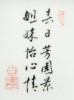 春日芳園景
姐妹怡心情